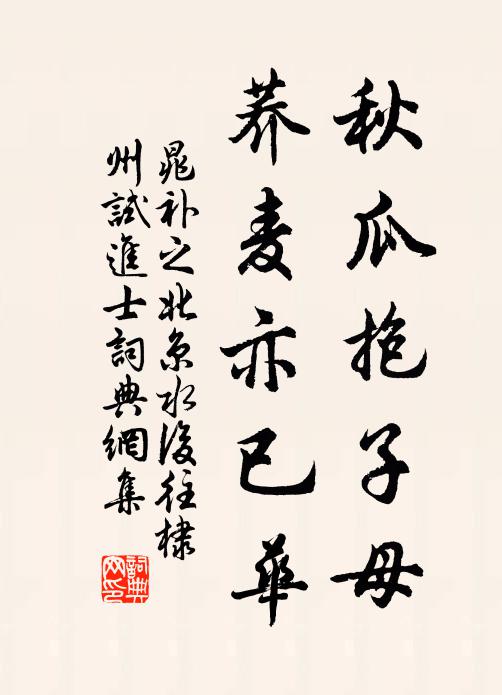 秋瓜抱子母
荞麦亦已華
晁补之北京水後往棣
州試進士詞典網集
詞典
网印